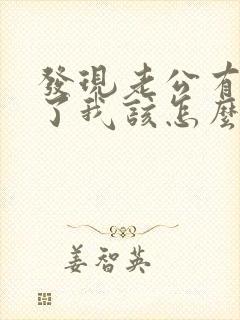 發現老公有
了我該怎麼
姜智英